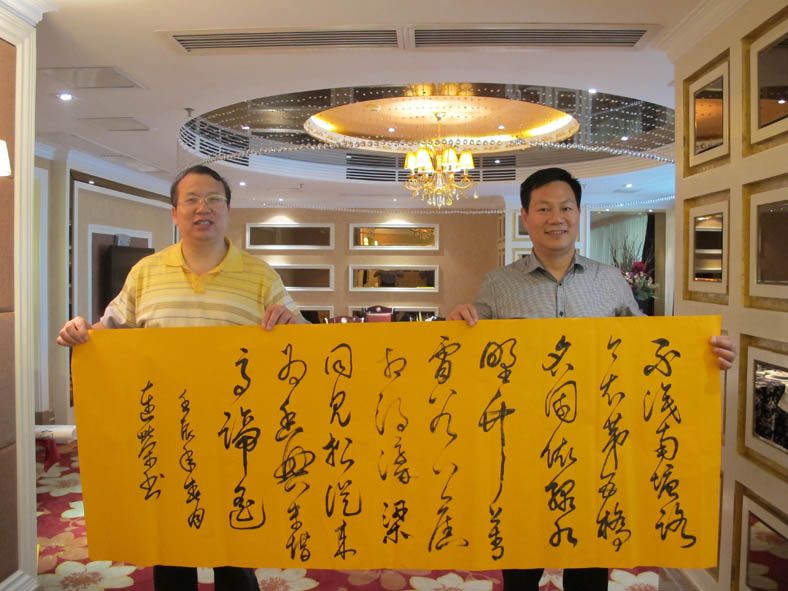 不識南塘路
今知第五橋
名園依綠水
野竹上青
霄谷口舊
相得濠梁
同見招從來
為幽興未惜
馬蹄遥
壬辰年春月
連世榮书